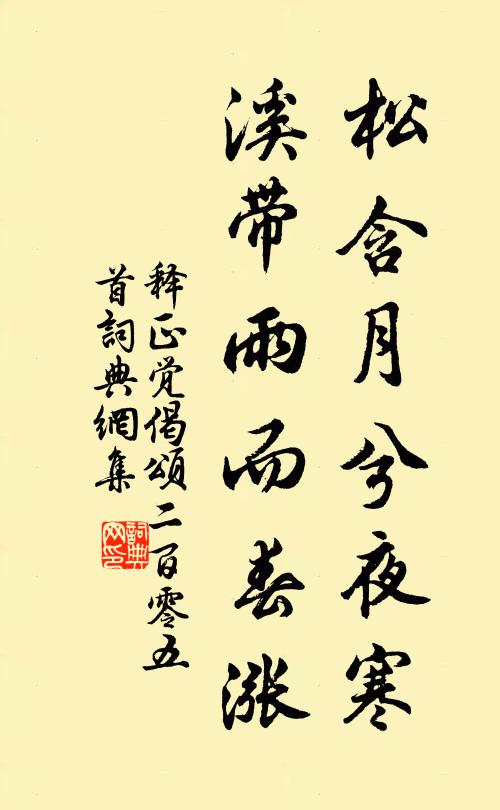 松含月兮夜寒
溪带雨而春涨
释正觉偈颂二百零五
首詞典網集
詞典網印